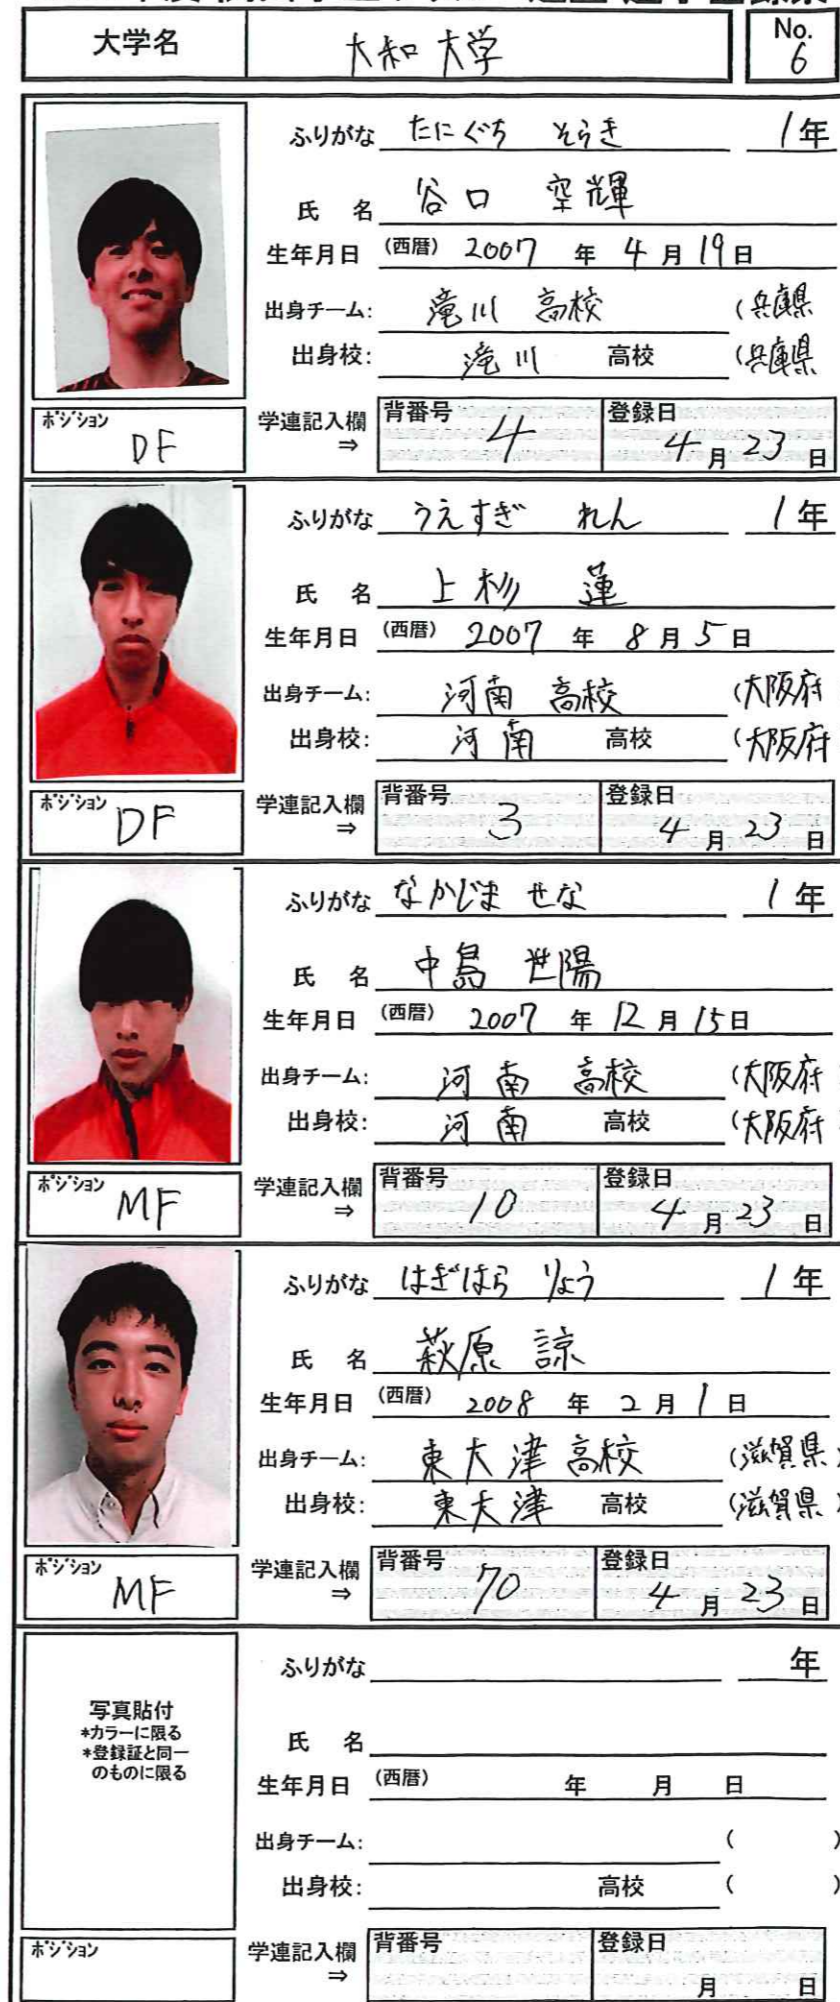 大学名 大和 大学 No. 6
ふりがな たにぐち そらき 1年
氏 名 谷口 空輝
生年月日 (西暦) 2007 年 4 月 19 日
出身チーム: 滝川 高校 (兵庫県
出身校: 滝川 高校 (兵庫県
ポジション DF
学連記入欄 ⇒ 背番号 4 登録日 4 月 23 日
ふりがな うえすぎ れん 1年
氏 名 上杉 蓮
生年月日 (西暦) 2007 年 8 月 5 日
出身チーム: 河南 高校 (大阪府
出身校: 河南 高校 (大阪府
ポジション DF
学連記入欄 ⇒ 背番号 3 登録日 4 月 23 日
ふりがな なかじま せな 1年
氏 名 中島 世陽
生年月日 (西暦) 2007 年 12 月 15 日
出身チーム: 河南 高校 (大阪府
出身校: 河南 高校 (大阪府
ポジション MF
学連記入欄 ⇒ 背番号 10 登録日 4 月 23 日
ふりがな はぎはら りょう 1年
氏 名 萩原 諒
生年月日 (西暦) 2008 年 2 月 1 日
出身チーム: 東大津高校 (滋賀県)
出身校: 東大津 高校 (滋賀県)
ポジション MF
学連記入欄 ⇒ 背番号 70 登録日 4 月 23 日
写真貼付
*カラーに限る
*登録証と同一
のものに限る
ふりがな 年
氏 名
生年月日 (西暦) 年 月 日
出身チーム: ( )
出身校: 高校 ( )
ポジション
学連記入欄 ⇒ 背番号 登録日 月 日